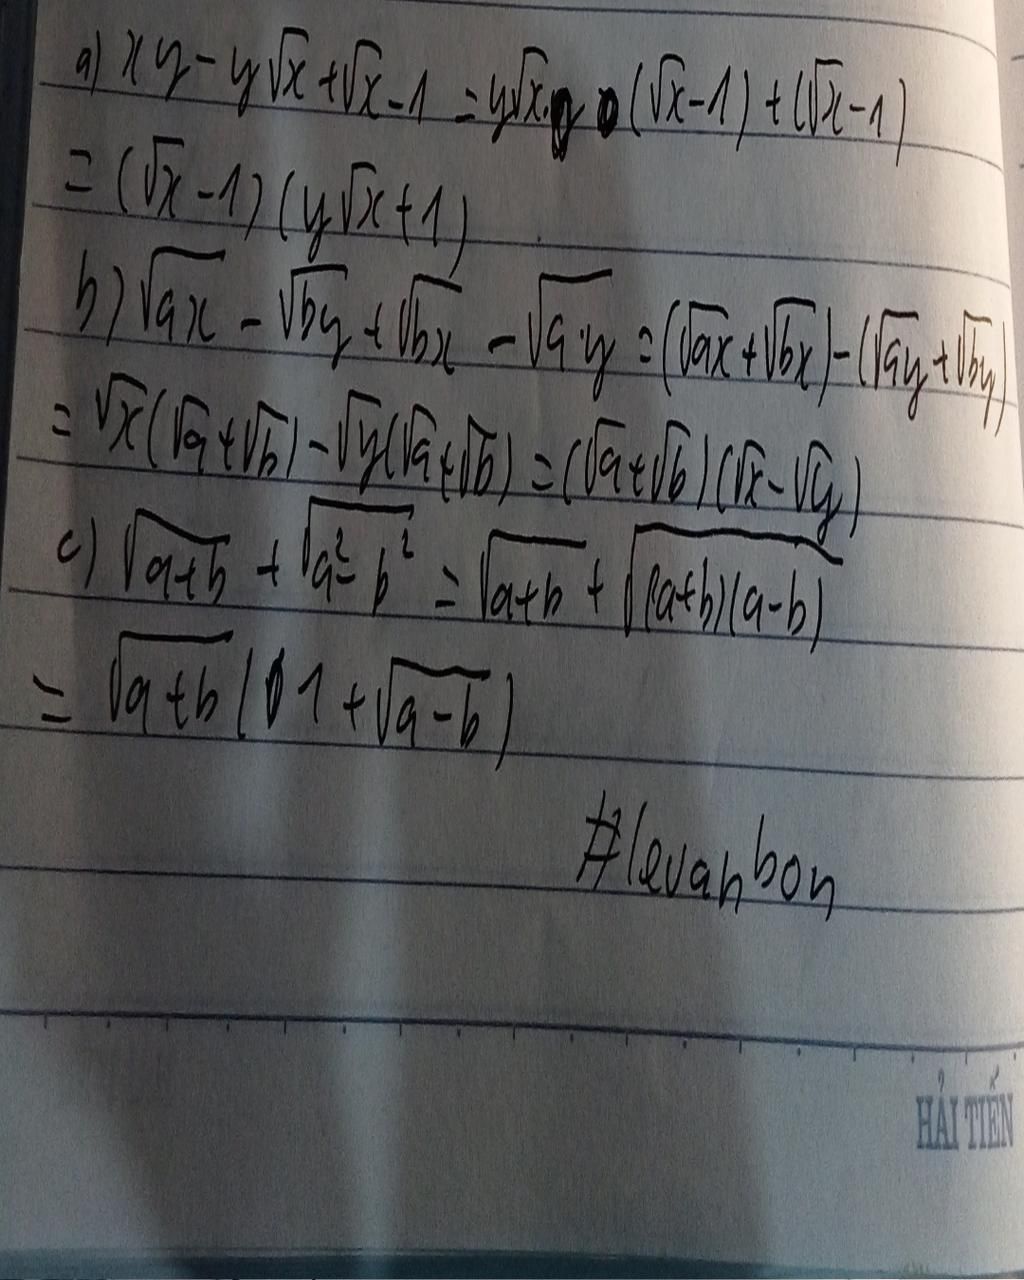 a) xy - y√x + √x - 1 = y√x (√x - 1) + (√x - 1)
= (√x - 1) (y√x + 1)
b) √ax - √by + √bx - √a.y = (√ax + √bx) - (√ay + √by)
= √x(√a + √b) - √y(√a + √b) = (√a + √b) (√x - √y)
c) √a+b + √a²-b² = √a+b + √(a+b)(a-b)
= √a+b (1 + √a-b)
#levanbon
HẢI TIẾN